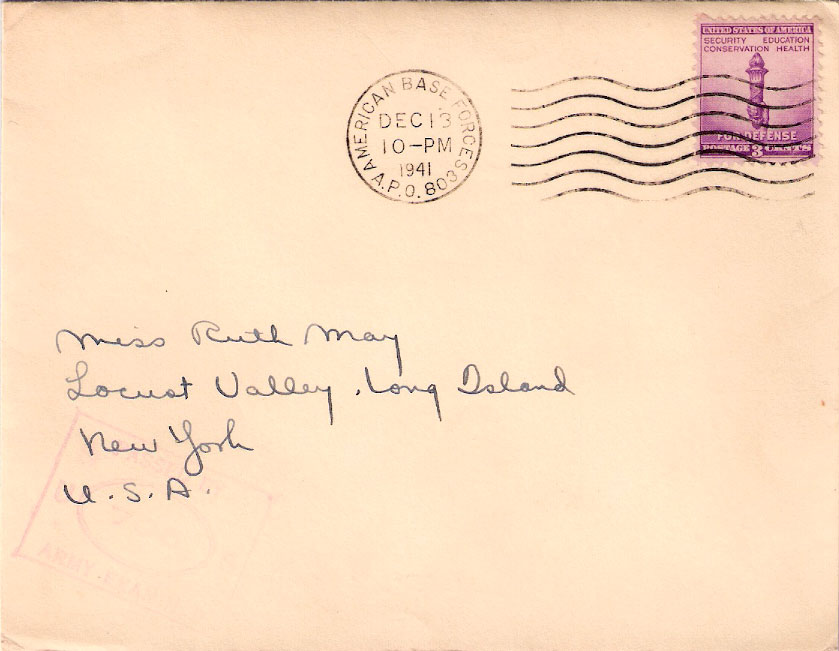 UNITED STATES OF AMERICA
SECURITY EDUCATION
CONSERVATION HEALTH
FOR DEFENSE
POSTAGE 3 CENTS
AMERICAN BASE FORCES
DEC 13
10-PM
1941
A.P.O. 803
Miss Ruth May
Locust Valley, Long Island
New York
U.S.A.
ARMY